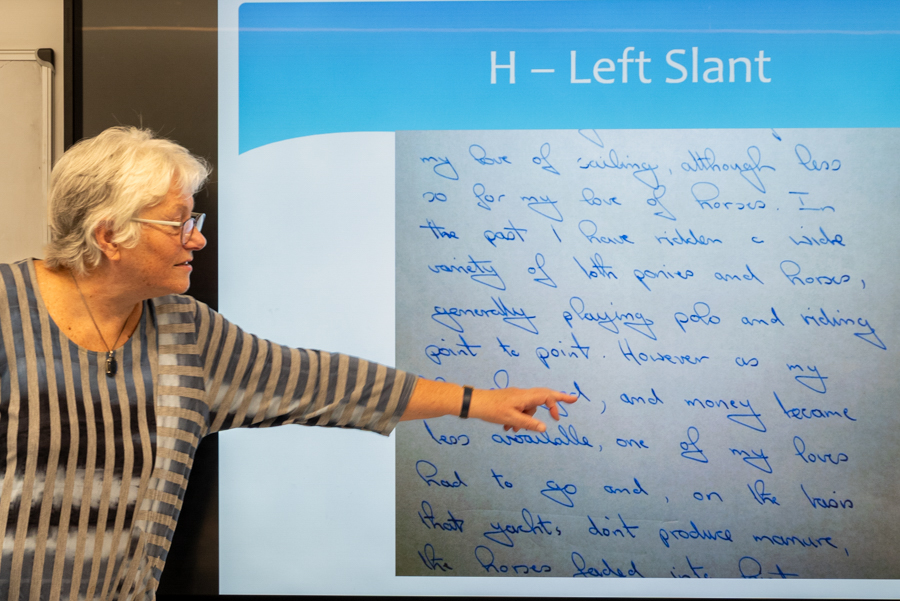 H – Left Slant
my love of sailing, although less
so for my love of horses. In
the past I have ridden a wide
variety of both ponies and horses,
generally playing polo and riding
point to point. However as my
, and money became
less available, one of my loves
had to go and, on the basis
that yachts don't produce manure,
the horses faded into